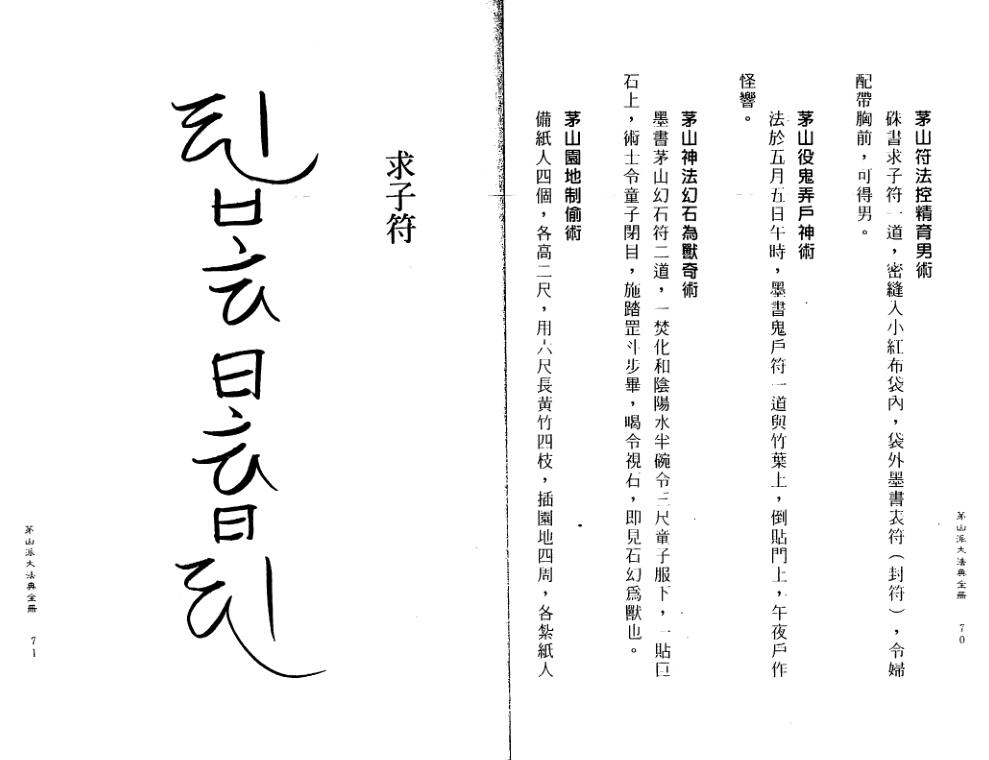 茅山符法控精育男術
硃書求子符一道，密縫入小紅布袋內，袋外墨書衣符（封符），令婦
配帶胸前，可得男。
茅山役鬼弄戶神術
法於五月五日午時，墨書鬼戶符一道與竹葉上，倒貼門上，午夜戶作
怪響。
茅山神法幻石為獸奇術
墨書茅山幻石符二道，一焚化和陰陽水半碗令三尺童子服下，一貼巨
石上，術士令童子閉目，施踏罡斗步畢，喝令視石，即見石幻爲獸也。
茅山園地制偷術
備紙人四個，各高二尺，用六尺長黃竹四枝，插園地四周，各紮紙人
茅山派大法典全冊 70
求子符
茅山派大法典全冊 71